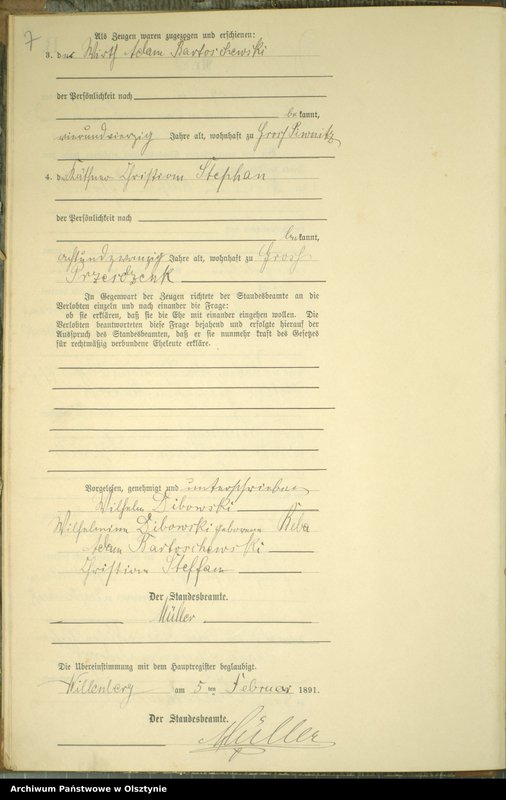 7
Als Zeugen waren zugezogen und erschienen:
3. der Wirth Adam Bartoschewski
der Persönlichkeit nach
be kannt,
vierundvierzig Jahre alt, wohnhaft zu Groß Piwnitz
4. der Käthner Christian Stephan
der Persönlichkeit nach
be kannt,
achtundzwanzig Jahre alt, wohnhaft zu Groß
Przesdzenk
In Gegenwart der Zeugen richtete der Standesbeamte an die
Verlobten einzeln und nach einander die Frage:
ob sie erklären, daß sie die Ehe mit einander eingehen wollen. Die
Verlobten beantworteten diese Frage bejahend und erfolgte hierauf der
Ausspruch des Standesbeamten, daß er sie nunmehr kraft des Gesetzes
für rechtmäßig verbundene Eheleute erkläre.
Vorgelesen, genehmigt und unterschrieben
Wilhelm Dibowski
Wilhelmine Dibowski geborene
Adam Bartoschewski
Christian Steffan
Der Standesbeamte.
Müller
Die Übereinstimmung mit dem Hauptregister beglaubigt.
Willenberg am 5 ten Februar 1891.
Der Standesbeamte.
Müller
Archiwum Państwowe w Olsztynie